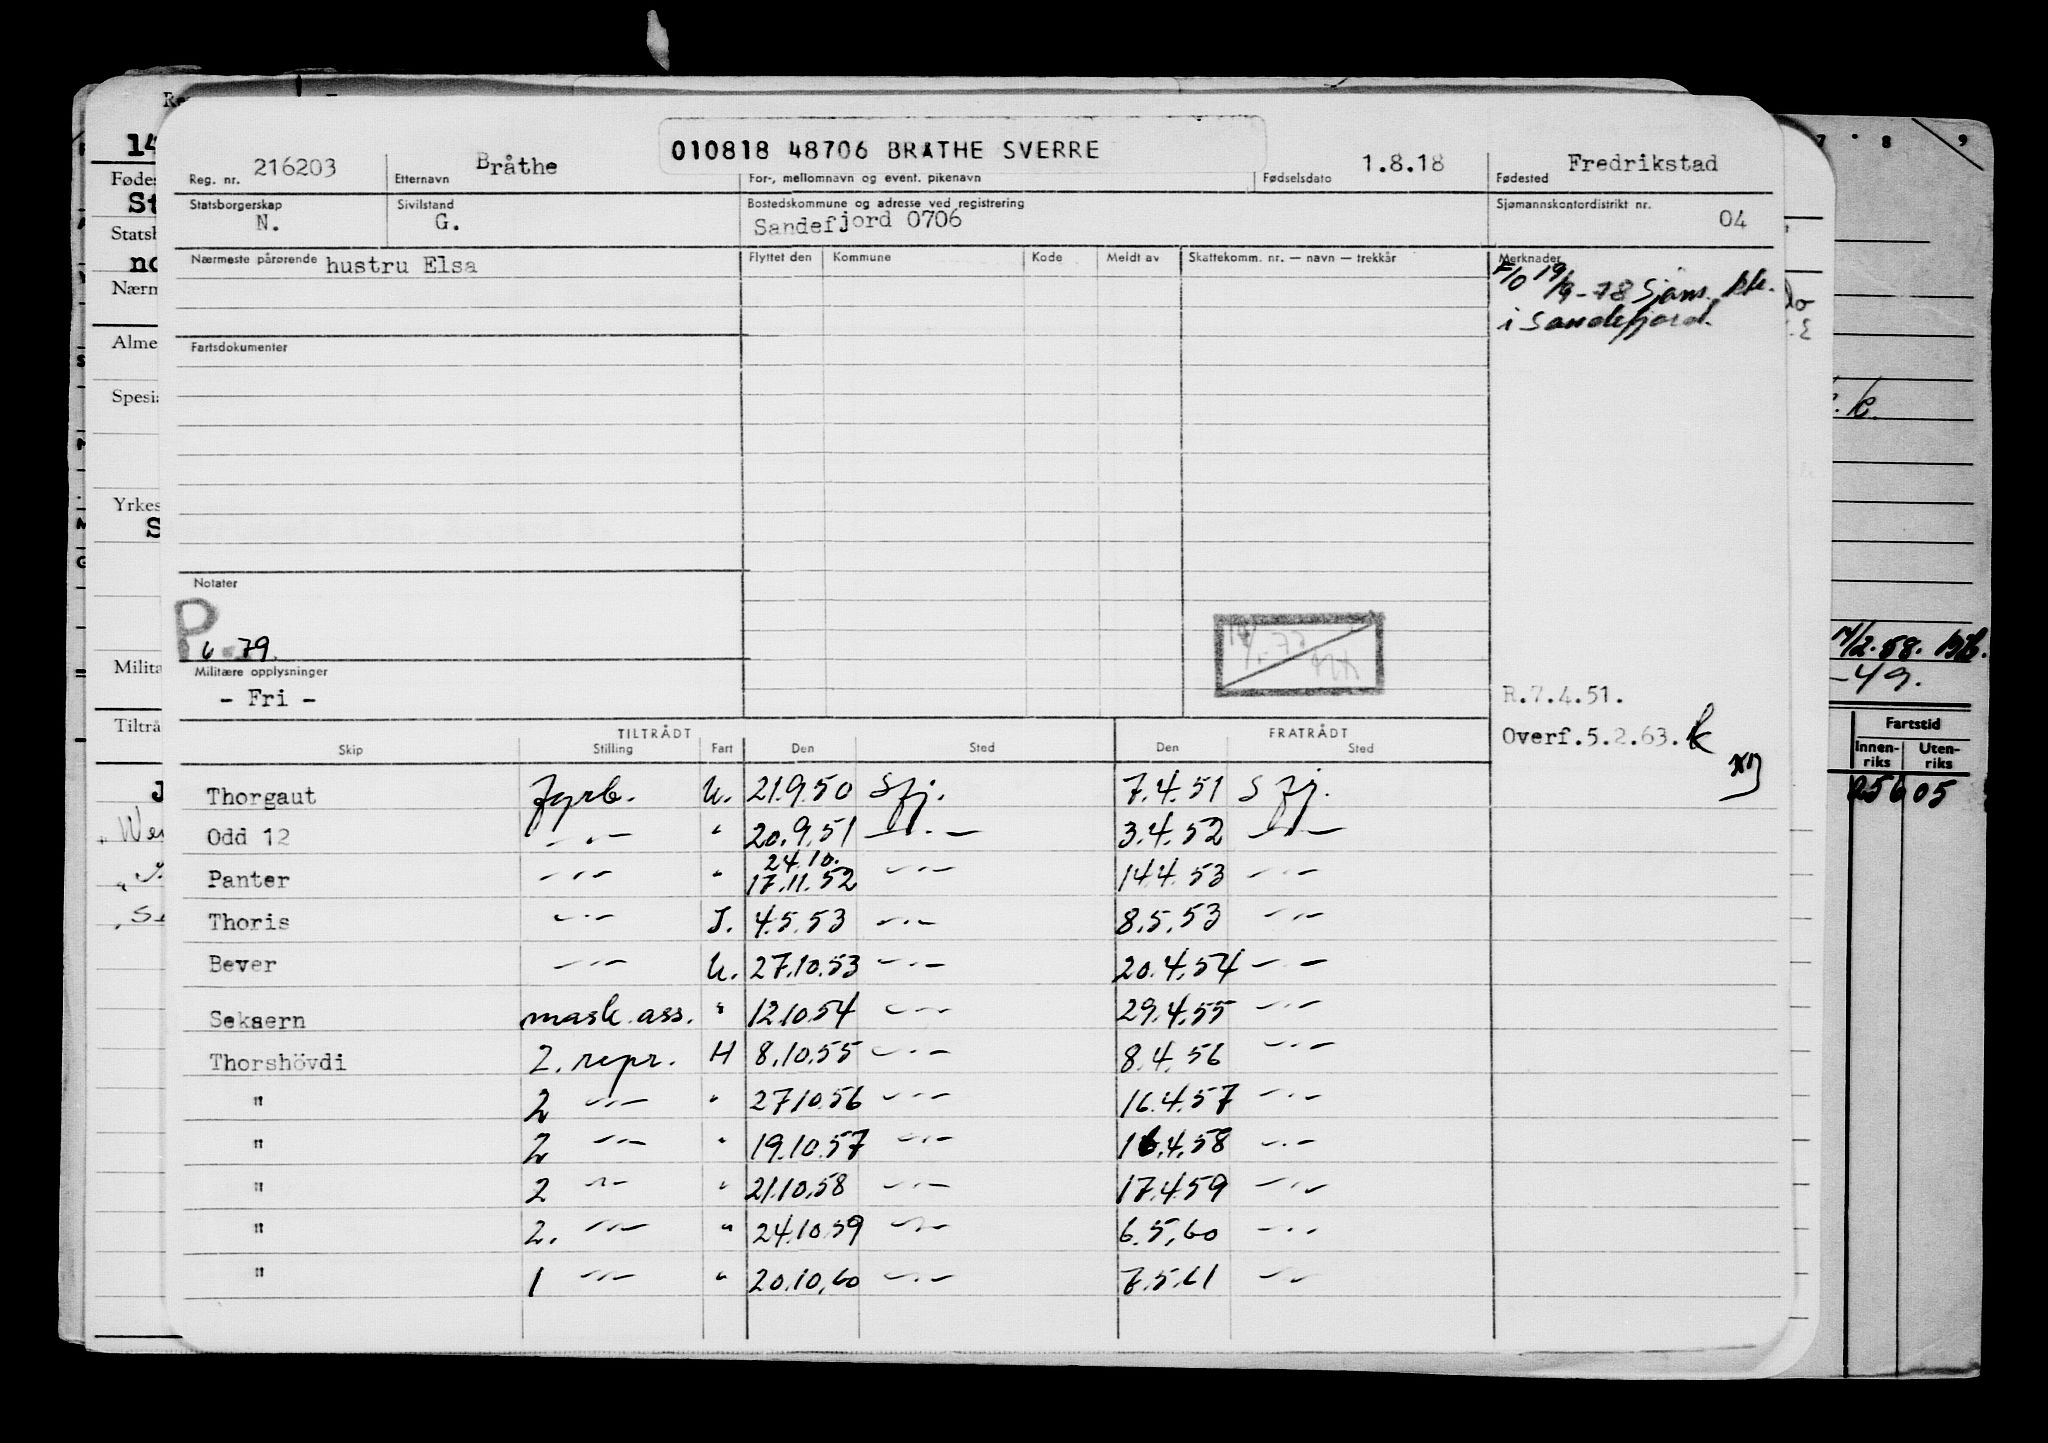 010818 48706 BRATHE SVERRE
Reg. nr. 216203 Etternavn Bråthe For-, mellomnavn og event. pikenavn Fødselsdato 1.8.18 Fødested Fredrikstad
Statsborgerskap N. Sivilstand G. Bostedskommune og adresse ved registrering Sandefjord 0706 Sjømannskontordistrikt nr. 04
Nærmeste pårørende hustru Elsa Flyttet den Kommune Kode Meldt av Skattekomm. nr. — navn — trekkår Merknader
F/O 19/9-78 Sjøms. ktr.
i Sandefjord.
Fartsdokumenter
Notater
P
6-79.
Militære opplysninger
- Fri -
R.7.4.51.
Overf.5.2.63.
TILTRÅDT FRATRÅDT
Skip Stilling Fart Den Sted Den Sted
Thorgaut fyrb. U. 21.9.50 Sfj. 7.4.51 S fj.
Odd 12 —"— " 20.9.51 —"— 3.4.52 —"—
24.10.
Panter —"— " 17.11.52 —"— 14.4.53 —"—
Thoris —"— I. 4.5.53 —"— 8.5.53 —"—
Bever —"— U. 27.10.53 —"— 20.4.54 —"—
Sekaern mask.ass. " 12.10.54 —"— 29.4.55 —"—
Thorshövdi 2. repr. H 8.10.55 —"— 8.4.56 —"—
" 2 —"— " 27.10.56 —"— 16.4.57 —"—
" 2 —"— " 19.10.57 —"— 16.4.58 —"—
" 2 —"— " 21.10.58 —"— 17.4.59 —"—
" 2. —"— " 24.10.59 —"— 6.5.60 —"—
" 1 —"— " 20.10.60 —"— 7.5.61 —"—
14
Fødes
St
Statsb
no
Nærm
Alme
Spesia
Yrkes
S
Milita
Tiltrå
7 8 9
-49.
Fartstid
Innen-
riks
Uten-
riks
05